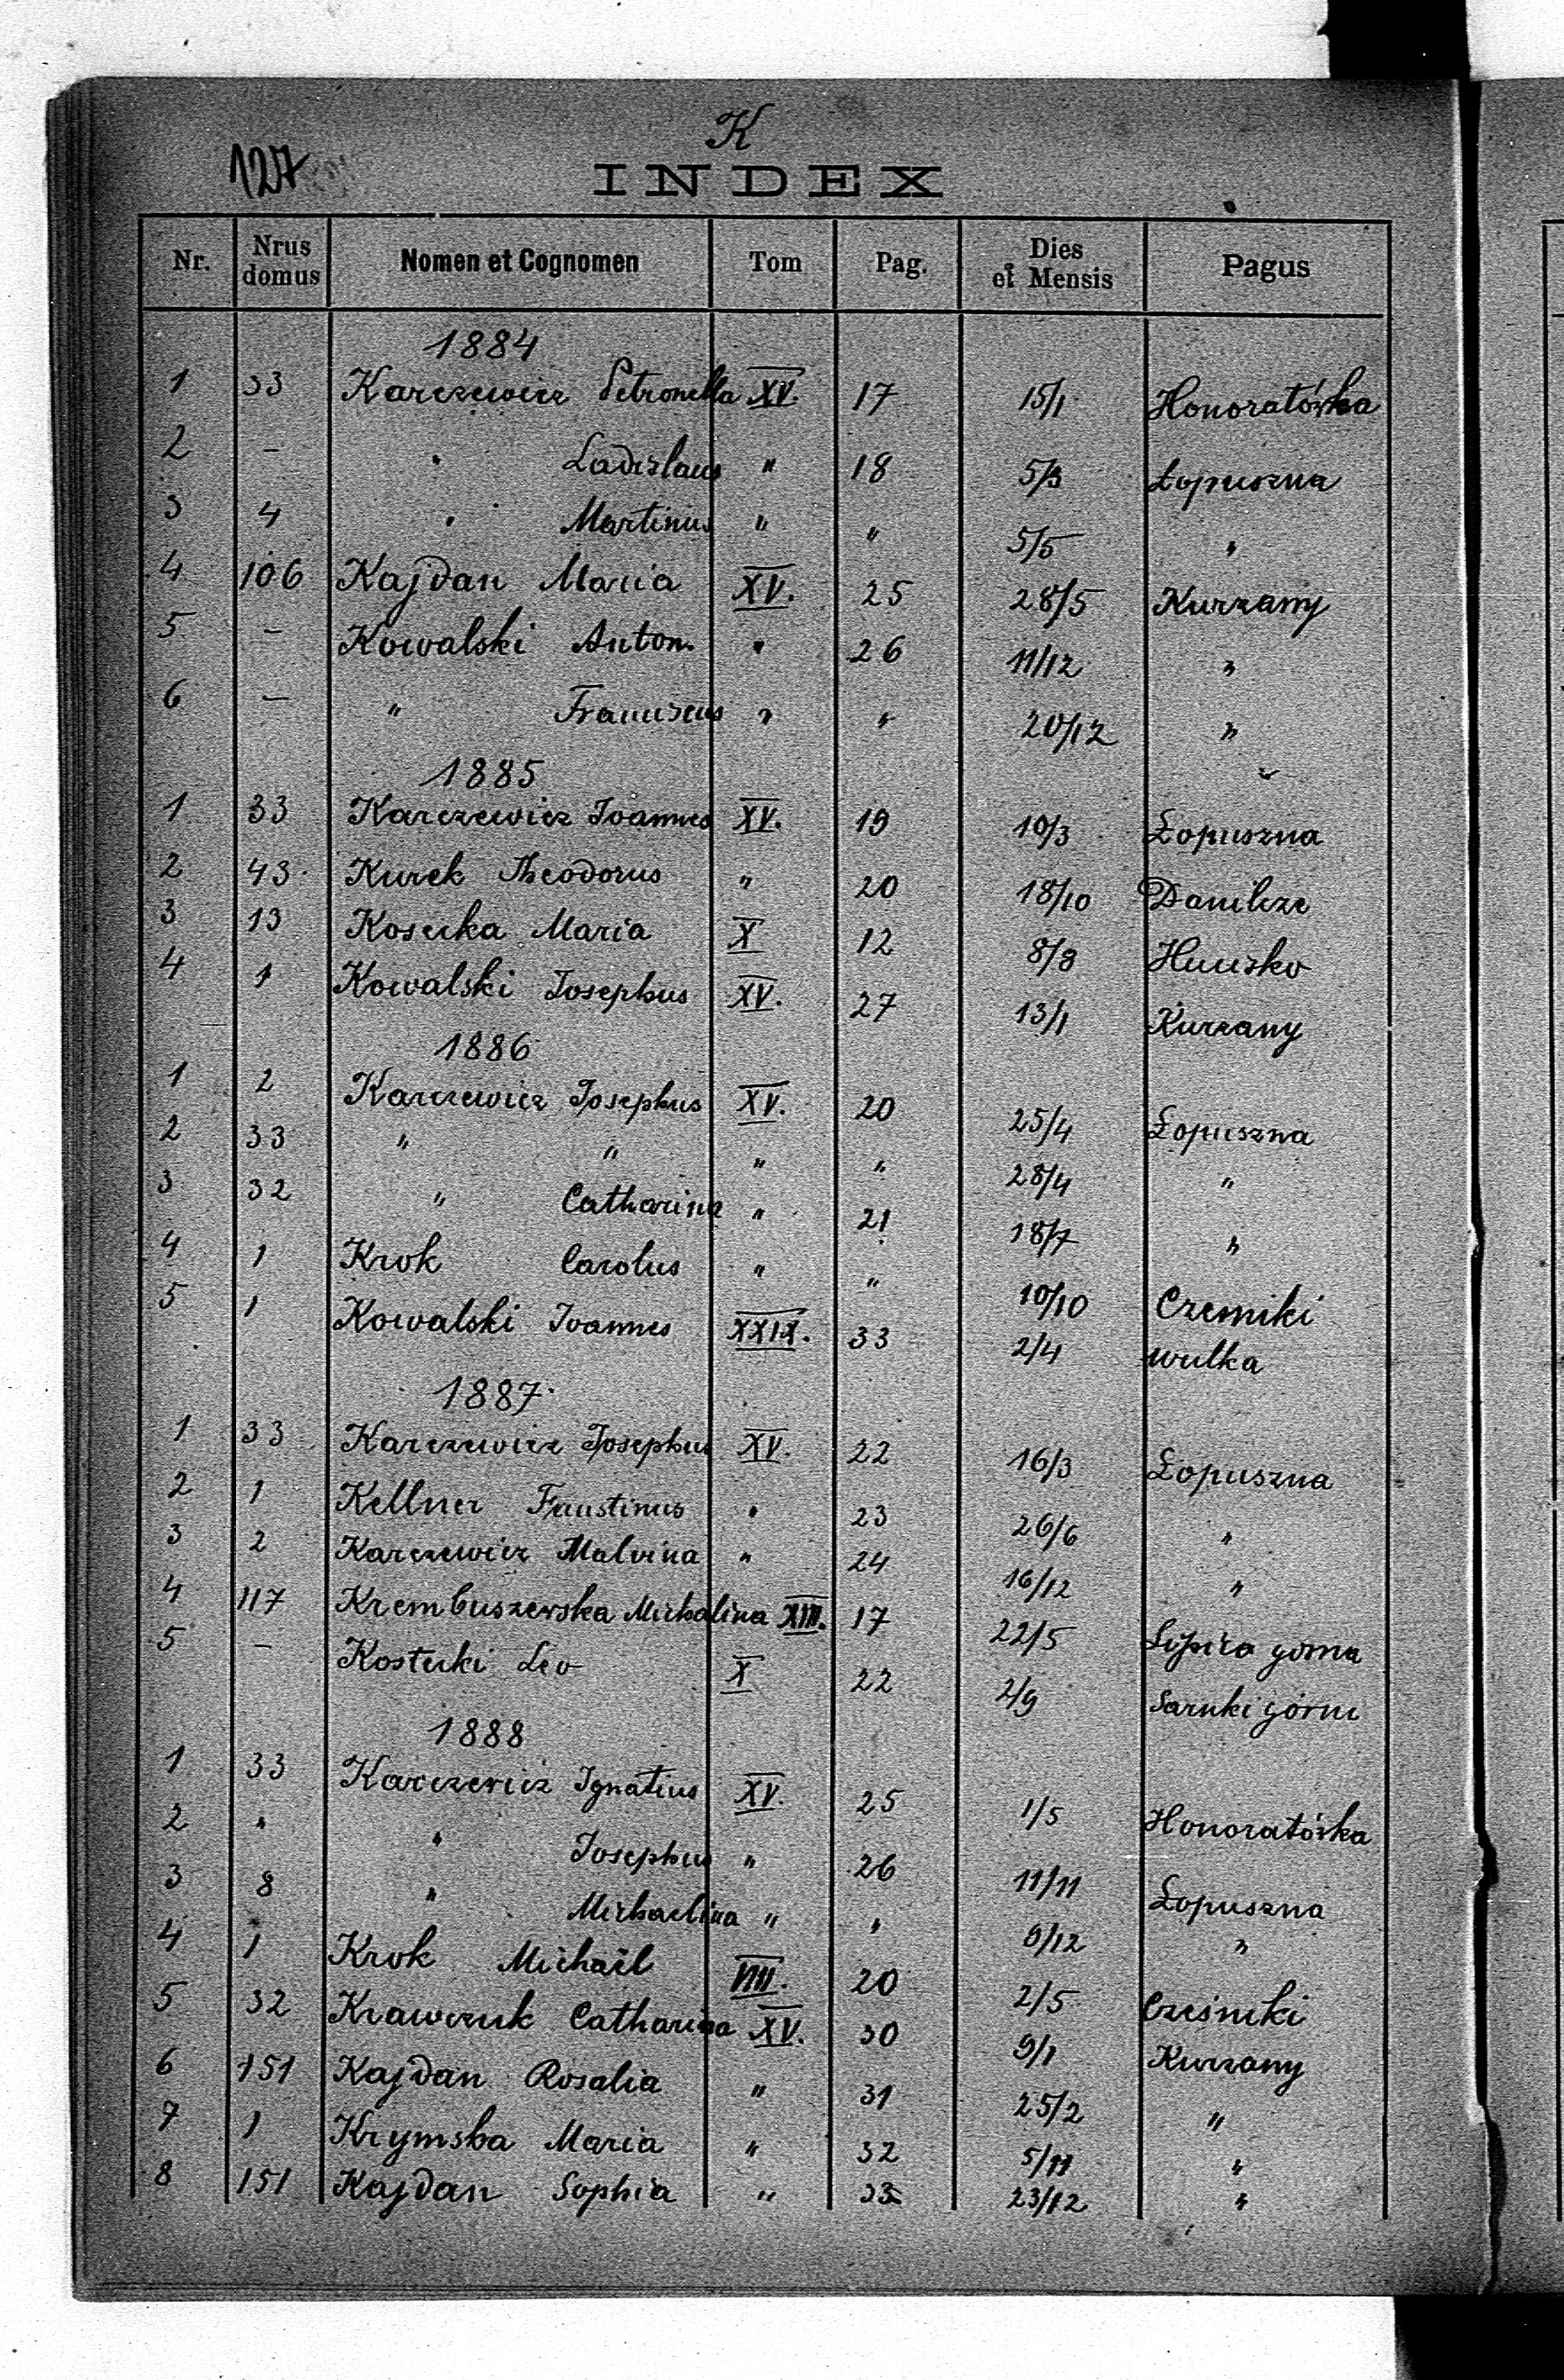 K
127
INDEX
Nr. Nrus domus Nomen et Cognomen Tom Pag. Dies et Mensis Pagus
1884
1 33 Karczewicz Petronella XV. 17 15/1 Honoratówka
2 - " Ladislaus " 18 5/3 Łopuszna
3 4 " Martinus " " 5/5 "
4 106 Kajdan Maria XV. 25 28/5 Kurzany
5 - Kowalski Anton. " 26 11/12 "
6 - " Franciscus " " 20/12 "
1885
1 33 Karczewicz Joannes XV. 19 10/3 Łopuszna
2 43 Kurek Theodorus " 20 18/10 Danilcze
3 13 Kosecka Maria X 12 8/8 Hucisko
4 1 Kowalski Josephus XV. 27 13/1 Kurzany
1886
1 2 Karczewicz Josephus XV. 20 25/4 Łopuszna
2 33 " " " " 28/4 "
3 32 " Catharina " 21 18/7 "
4 1 Krok Carolus " " 10/10 Czerniki
5 1 Kowalski Joannes XXIX. 33 2/4 Wulka
1887
1 33 Karczewicz Josephus XV. 22 16/3 Łopuszna
2 1 Kellner Faustinus " 23 26/6 "
3 2 Karczewicz Malvina " 24 16/12 "
4 117 Krembuszewska Michalina XIII. 17 22/5 Lipica gorna
5 - Kostecki Leo X 22 2/9 Sarnki górne
1888
1 33 Karczewicz Ignatius XV. 25 1/5 Honoratówka
2 " " Josephus " 26 11/11 Łopuszna
3 8 " Michaelina " " 9/12 "
4 1 Krok Michaël VIII. 20 2/5 Cześniki
5 32 Krawczuk Catharina XV. 30 9/1 Kurzany
6 151 Kajdan Rosalia " 31 25/2 "
7 1 Krymska Maria " 32 5/11 "
8 151 Kajdan Sophia " 23/12 "